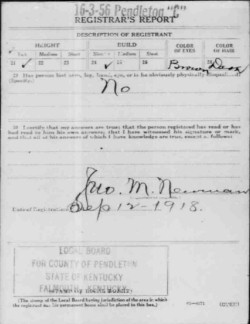 16-3-56 Pendleton "C"
REGISTRAR'S REPORT
DESCRIPTION OF REGISTRANT
HEIGHT BUILD COLOR OF EYES COLOR OF HAIR
Tall Medium Short Slender Medium Stout
21 22 23 24 25 26 27 Brown 28 Dark
29 Has person lost arm, leg, hand, eye, or is he obviously physically
(Specify.)
No
30 I certify that my answers are true; that the person registered has read or has
had read to him his own answers; that I have witnessed his signature or mark,
and that all of his answers of which I have knowledge are true, except as follows:
Jno. M. Newman
Date of Registration Sep 12-1918.
LOCAL BOARD
FOR COUNTY OF PENDLETON
STATE OF KENTUCKY
FALMOUTH, KENTUCKY
(STAMP OF LOCAL BOARD)
(The stamp of the Local Board having jurisdiction of the area in which
the registrant has his permanent home shall be placed in this box.)